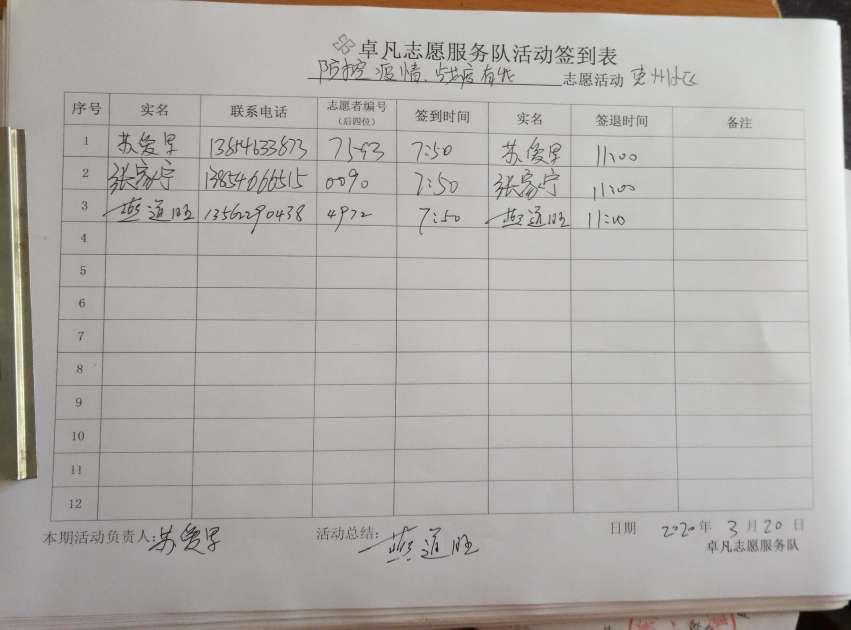 卓凡志愿服务队活动签到表
防控疫情、战疫有我 志愿活动
序号 实名 联系电话 志愿者编号（后四位） 签到时间 实名 签退时间 备注
1 苏爱军 13814633873 7593 7:50 苏爱军 11:00
2 张家宁 13854666515 0090 7:50 张家宁 11:00
3 燕道旺 13562290438 4972 7:50 燕道旺 11:00
4
5
6
7
8
9
10
11
12
本期活动负责人:苏爱军 活动总结:燕道旺 日期 2020年 3月20日
卓凡志愿服务队